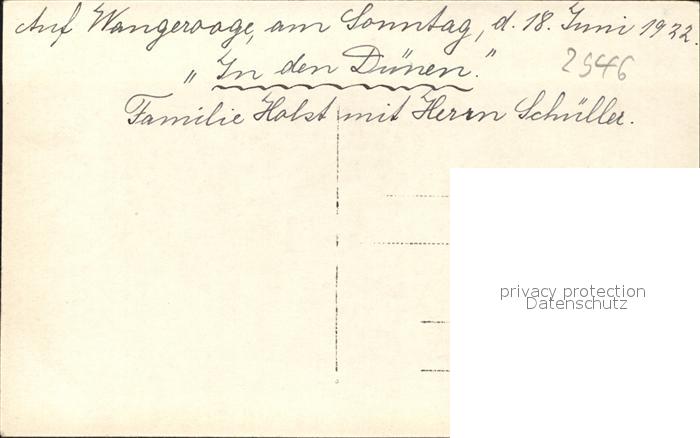 Auf Wangerooge, am Sonntag, d. 18. Juni 1922.
„In den Dünen."
2546
Familie Holst mit Herrn Schüller.
privacy protection
Datenschutz